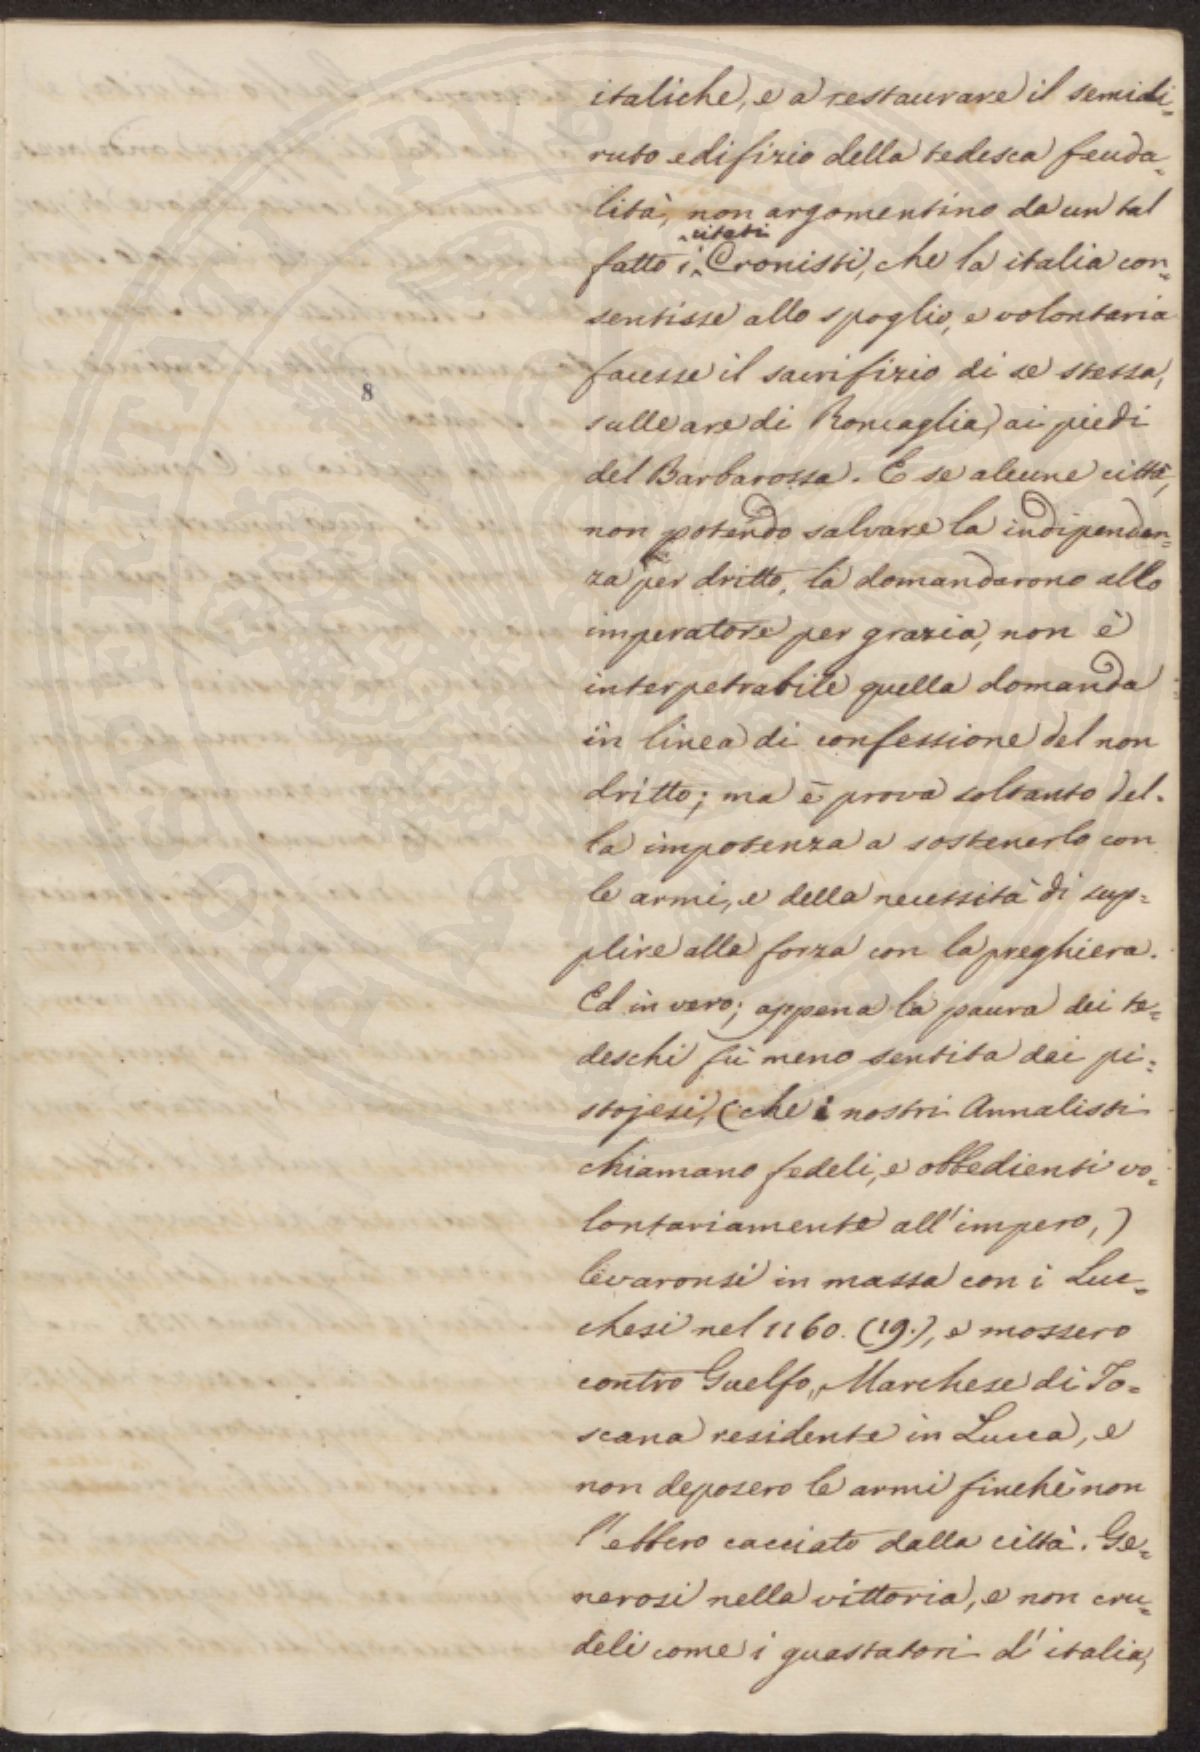 italiche, e a restaurare il semidi=
ruto edifizio della tedesca feuda=
lità, non argomentino da un tal
citati
fatto i Cronisti, che la italia con=
sentisse allo spoglio, e volontaria
facesse il sacrifizio di se stessa,
sulle are di Roncaglia, ai piedi
del Barbarossa. E se alcune città,
non potendo salvare la indipenden=
za per dritto, la domandarono allo
imperatore per grazia, non è
interpetrabile quella domanda
in linea di confessione del non
dritto; ma è prova soltanto del=
la impotenza a sostenerlo con
le armi, e della necessità di sup=
plire alla forza con la preghiera.
Ed in vero; appena la paura dei te=
deschi fù meno sentita dai pi=
stojesi, (che i nostri Annalisti
chiamano fedeli, e obbedienti vo=
lontariamente all'impero,)
levaronsi in massa con i Luc=
chesi nel 1160. (19.), e mossero
contro Guelfo, Marchese di To=
scana residente in Lucca, e
non deposero le armi finchè non
l'ebbero cacciato dalla città. Ge=
nerosi nella vittoria, e non cru=
deli come i guastatori d'italia,
8